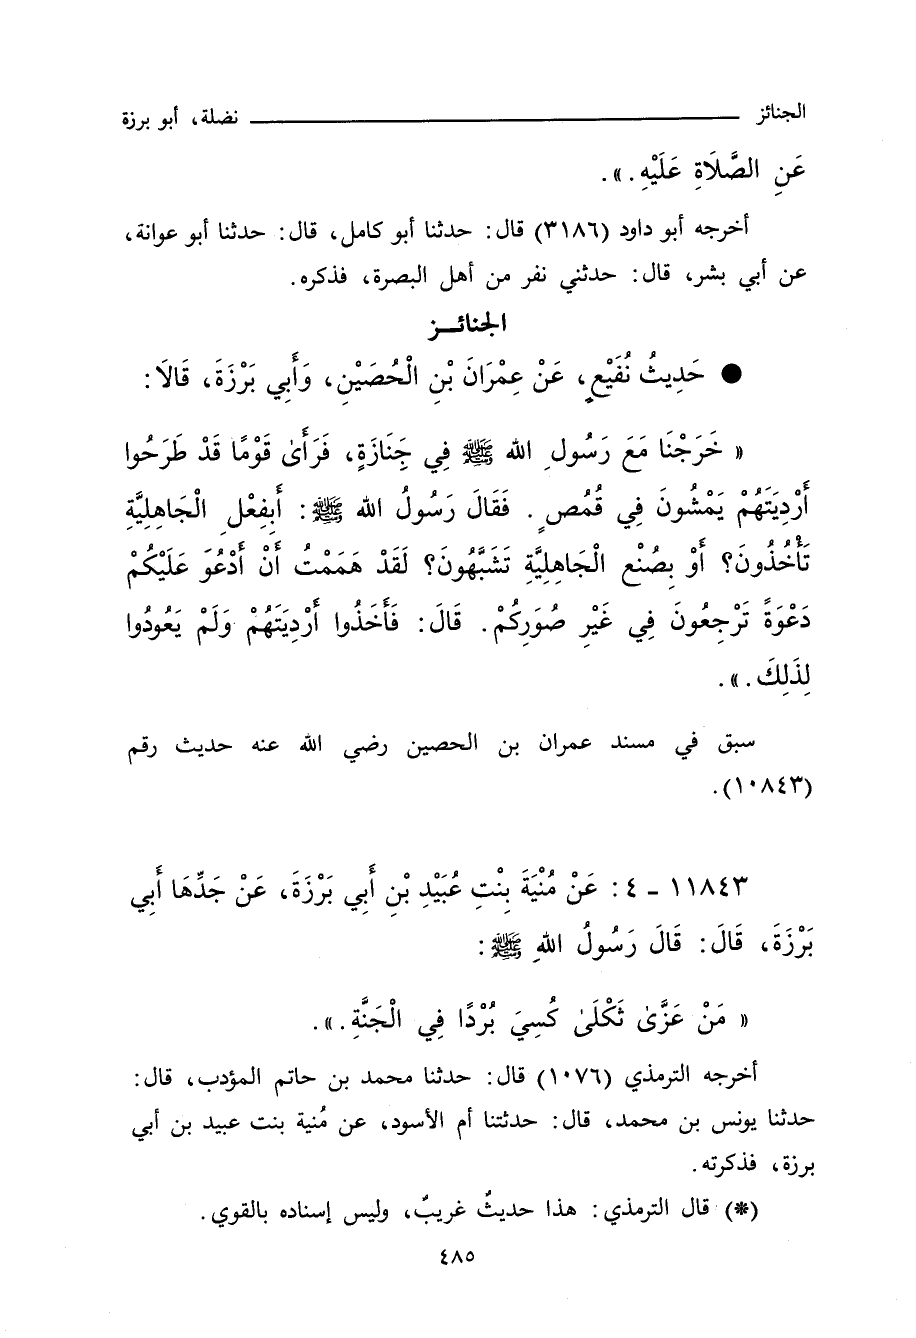 الجنائز ــــــــــــــــــــ نضلة، أبو برزة
عَنِ الصَّلَاةِ عَلَيْهِ . » .
أخرجه أبو داود (٣١٨٦) قال: حدثنا أبو كامل، قال: حدثنا أبو عوانة،
عن أبي بشر، قال: حدثني نفر من أهل البصرة، فذكره.
الجنائـــز
● حَدِيثُ نُفَيْعٍ، عَنْ عِمْرَانَ بْنِ الْحُصَيْنِ، وَأَبِي بَرْزَةَ، قَالَا:
« خَرَجْنَا مَعَ رَسُولِ الله ﷺ فِي جَنَازَةٍ، فَرَأَىٰ قَوْمًا قَدْ طَرَحُوا
أَرْدِيَتَهُمْ يَمْشُونَ فِي قُمُصٍ . فَقَالَ رَسُولُ الله ﷺ : أَبِفِعْلِ الْجَاهِلِيَّةِ
تَأْخُذُونَ؟ أَوْ بِصُنْعِ الْجَاهِلِيَّةِ تَشَبَّهُونَ؟ لَقَدْ هَمَمْتُ أَنْ أَدْعُوَ عَلَيْكُمْ
دَعْوَةً تَرْجِعُونَ فِي غَيْرِ صُوَرِكُمْ. قَالَ: فَأَخَذُوا أَرْدِيَتَهُمْ وَلَمْ يَعُودُوا
لِذَلِكَ . » .
سبق في مسند عمران بن الحصين رضي الله عنه حديث رقم
(١٠٨٤٣).
١١٨٤٣ - ٤ : عَنْ مُنْيَةَ بِنْتِ عُبَيْدِ بْنِ أَبِي بَرْزَةَ، عَنْ جَدِّهَا أَبِي
بَرْزَةَ، قَالَ: قَالَ رَسُولُ اللهِ ﷺ :
« مَنْ عَزَّىٰ ثَكْلَىٰ كُسِيَ بُرْدًا فِي الْجَنَّةِ . » .
أخرجه الترمذي (١٠٧٦) قال: حدثنا محمد بن حاتم المؤدب، قال:
حدثنا يونس بن محمد، قال: حدثتنا أم الأسود، عن مُنية بنت عبيد بن أبي
برزة، فذكرته.
(*) قال الترمذي: هذا حديثٌ غريبٌ، وليس إسناده بالقوي.
٤٨٥